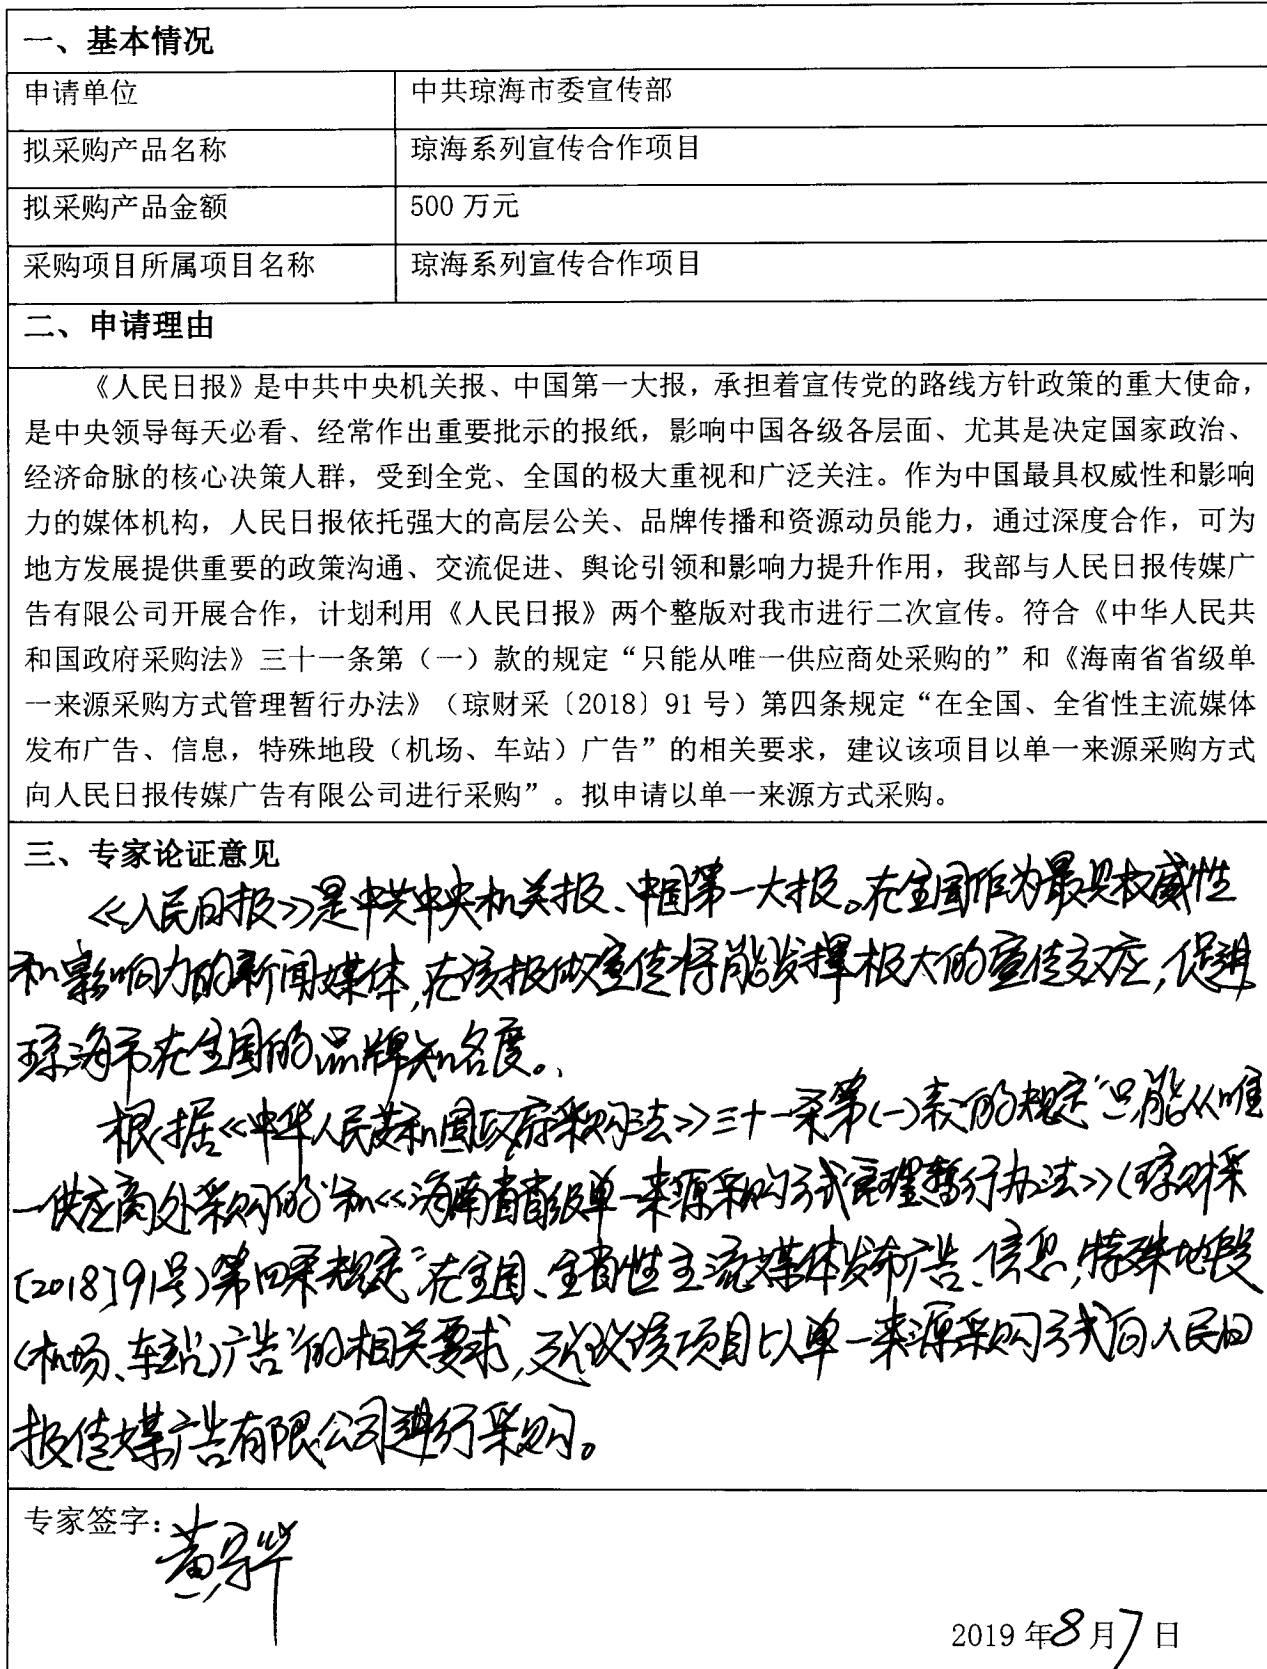 一、基本情况
申请单位 中共琼海市委宣传部
拟采购产品名称 琼海系列宣传合作项目
拟采购产品金额 500 万元
采购项目所属项目名称 琼海系列宣传合作项目
二、申请理由
《人民日报》是中共中央机关报、中国第一大报，承担着宣传党的路线方针政策的重大使命，
是中央领导每天必看、经常作出重要批示的报纸，影响中国各级各层面、尤其是决定国家政治、
经济命脉的核心决策人群，受到全党、全国的极大重视和广泛关注。作为中国最具权威性和影响
力的媒体机构，人民日报依托强大的高层公关、品牌传播和资源动员能力，通过深度合作，可为
地方发展提供重要的政策沟通、交流促进、舆论引领和影响力提升作用，我部与人民日报传媒广
告有限公司开展合作，计划利用《人民日报》两个整版对我市进行二次宣传。符合《中华人民共
和国政府采购法》三十一条第（一）款的规定“只能从唯一供应商处采购的”和《海南省省级单
一来源采购方式管理暂行办法》（琼财采〔2018〕91 号）第四条规定“在全国、全省性主流媒体
发布广告、信息，特殊地段（机场、车站）广告”的相关要求，建议该项目以单一来源采购方式
向人民日报传媒广告有限公司进行采购”。拟申请以单一来源方式采购。
三、专家论证意见
《人民日报》是中共中央机关报、中国第一大报。在全国作为最具权威性
和影响力的新闻媒体，在该报做宣传将能发挥极大的宣传效应，促进
琼海市在全国的品牌知名度。
根据《中华人民共和国政府采购法》三十一条第(一)款的规定“只能从唯
一供应商处采购的”和《海南省省级单一来源采购方式管理暂行办法》(琼财采
〔2018〕91号)第四条规定“在全国、全省性主流媒体发布广告、信息，特殊地段
(机场、车站)广告”的相关要求，建议该项目以单一来源采购方式向人民日
报传媒广告有限公司进行采购。
专家签字：
2019 年 8 月 7 日